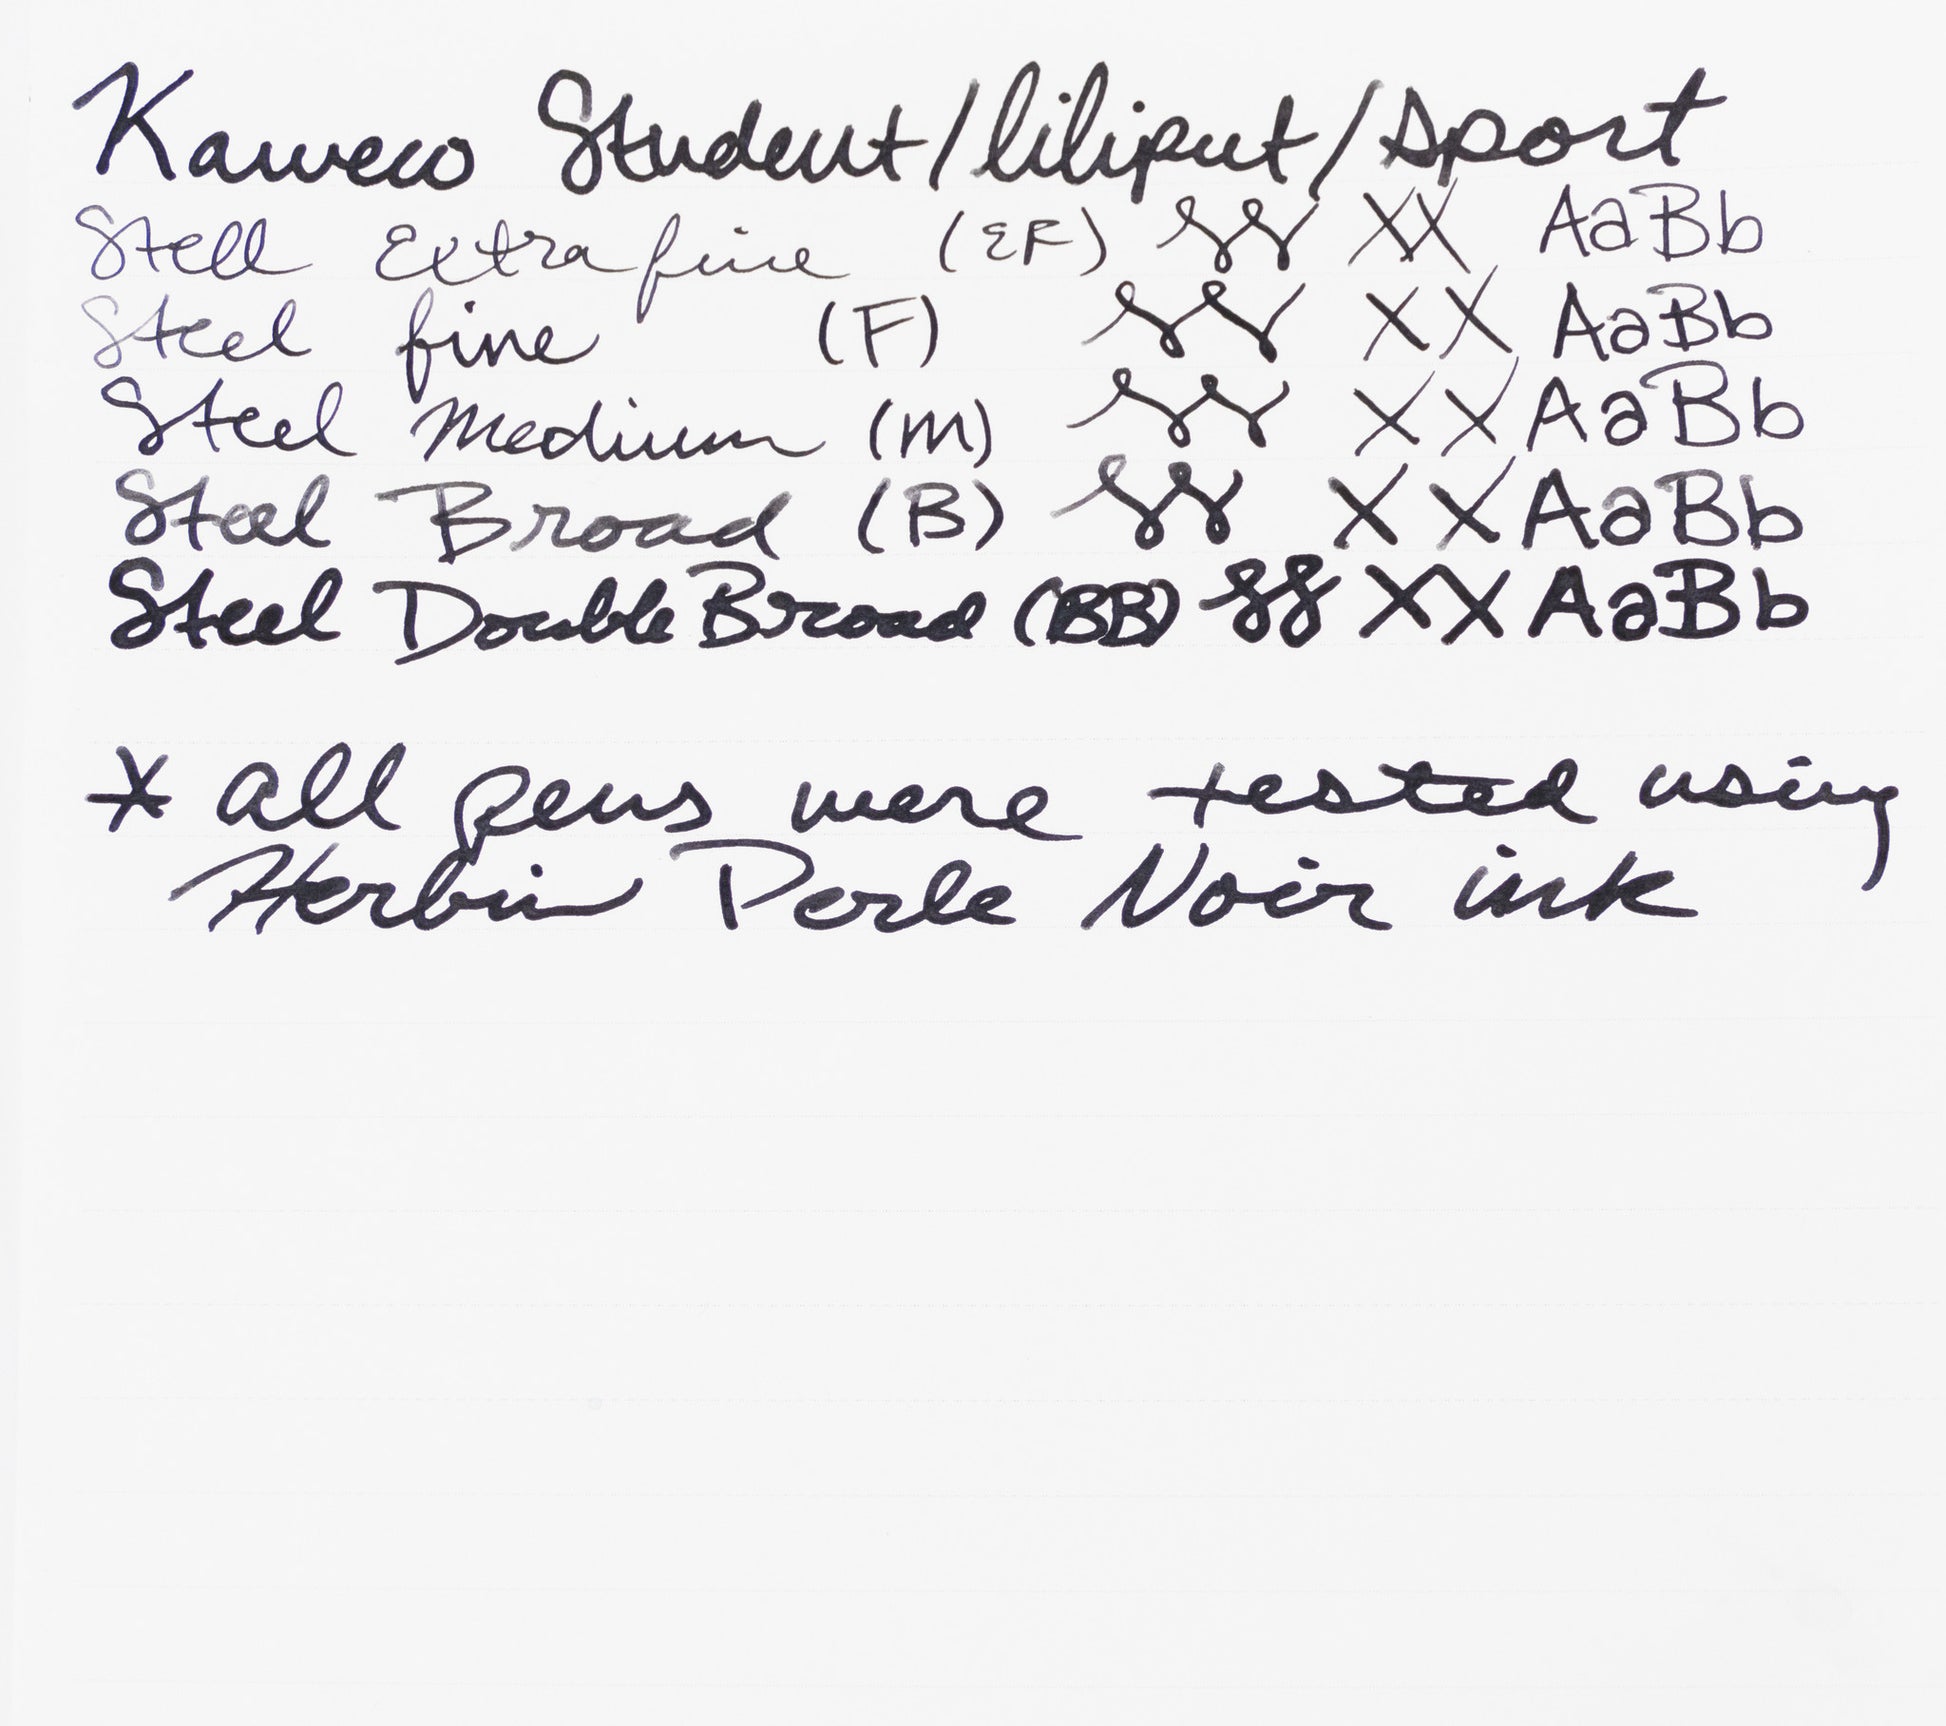 Kaweco Student/liliput/sport
Stell Extra fine (EF) XX AaBb
Steel fine (F) XX AaBb
Steel Medium (M) XX AaBb
Steel Broad (B) XX AaBb
Steel Double Broad (BB) XX AaBb
* all pens were tested using
Herbin Perle Noir ink